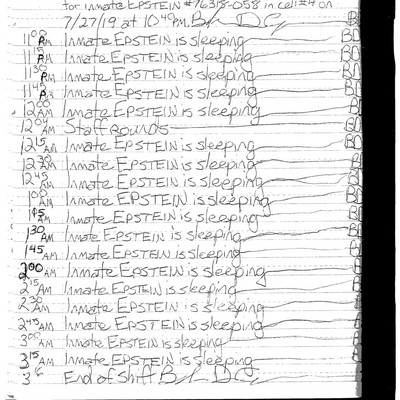 for inmate EPSTEIN #76318-058 in cell#4 on
7/27/19 at 10:40pm.
11:00 PM Inmate EPSTEIN is sleeping BD
11:15 PM Inmate EPSTEIN is sleeping BD
11:30 PM Inmate EPSTEIN is sleeping BD
11:45 PM Inmate EPSTEIN is sleeping BD
12:00 AM Inmate EPSTEIN is sleeping BD
12:04 AM Staff rounds BD
12:15 AM Inmate EPSTEIN is sleeping BD
12:30 AM Inmate EPSTEIN is sleeping BD
12:45 AM Inmate EPSTEIN is sleeping BD
1:00 AM Inmate EPSTEIN is sleeping BD
1:15 AM Inmate EPSTEIN is sleeping BD
1:30 AM Inmate EPSTEIN is sleeping BD
1:45 AM Inmate EPSTEIN is sleeping BD
2:00 AM Inmate EPSTEIN is sleeping BD
2:15 AM Inmate EPSTEIN is sleeping BD
2:30 AM Inmate EPSTEIN is sleeping BD
2:45 AM Inmate EPSTEIN is sleeping BD
3:00 AM Inmate EPSTEIN is sleeping BD
3:15 AM Inmate EPSTEIN is sleeping BD
End of Shift